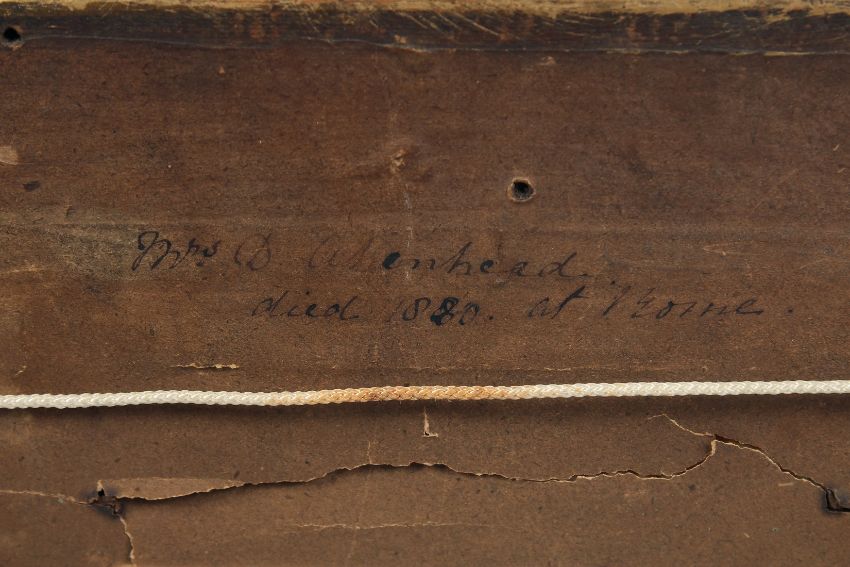 Mrs D. Akenhead.
died 1880. at Rome.